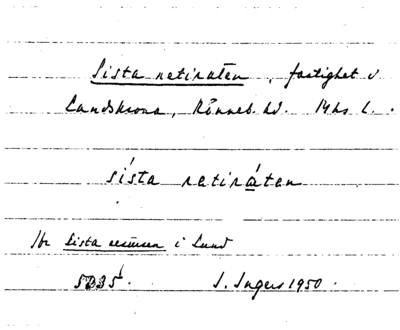 Sista retiraten, fastighet v
Landskrona, Rönneb. hd. M hs l.
sísta retiráten
Jfr Sista resursen i Lund
I. Ingers 1950.